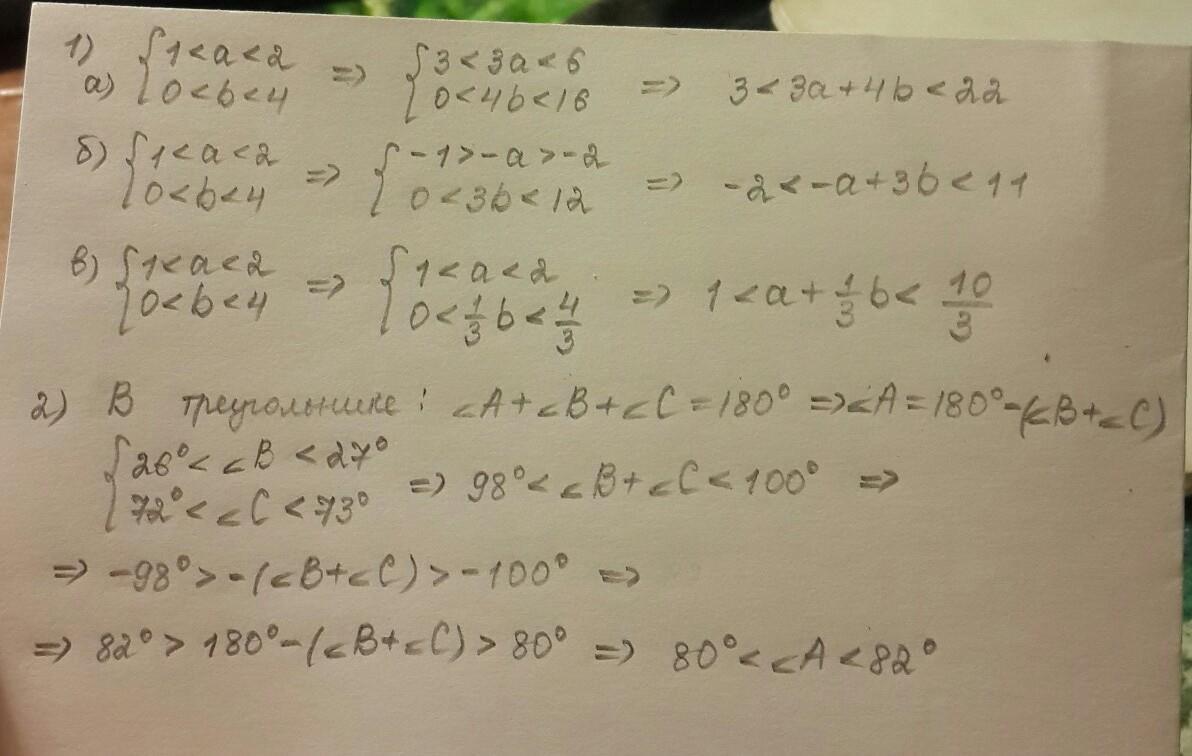 1) а) { 1<a<2 0<b<4 => { 3<3a<6 0<4b<16 => 3<3a+4b<22
б) { 1<a<2 0<b<4 => { -1>-a>-2 0<3b<12 => -2<-a+3b<11
в) { 1<a<2 0<b<4 => { 1<a<2 0<1/3 b<4/3 => 1<a+1/3 b<10/3
2) В треугольнике: ∠A+∠B+∠C=180° =>∠A=180°-(∠B+∠C)
{ 26°<∠B<27° 72°<∠C<73° => 98°<∠B+∠C<100° =>
=> -98°>-(∠B+∠C)>-100° =>
=> 82°>180°-(∠B+∠C)>80° => 80°<∠A<82°